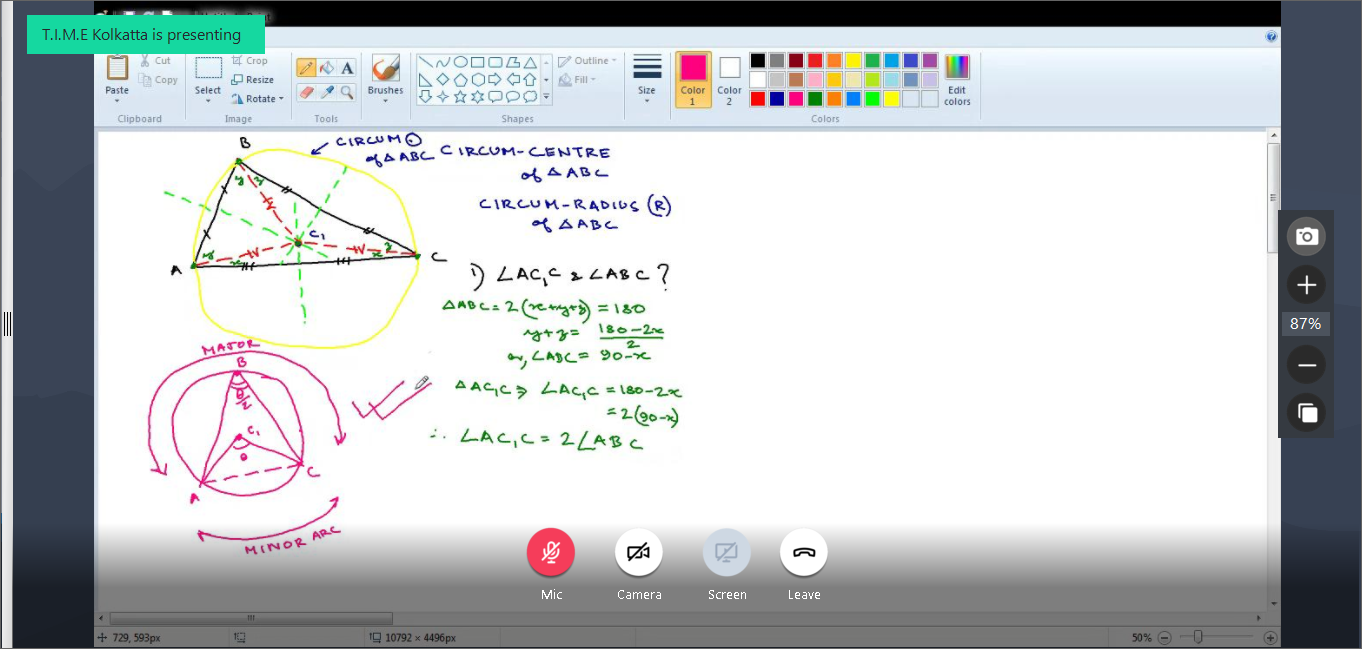 T.I.M.E Kolkatta is presenting
Paste
Cut
Copy
Clipboard
Select
Crop
Resize
Rotate
Image
A
Tools
Brushes
Outline
Fill
Shapes
Size
Color 1
Color 2
Edit colors
Colors
CIRCUM ⊙
of △ABC
CIRCUM-CENTRE
of △ABC
CIRCUM-RADIUS (R)
of △ABC
B
y y
r
C₁
y
x
r
r
z
x
A
C
1) ∠AC₁C & ∠ABC ?
△ABC = 2(x+y+z) = 180
y+z = 180-2x
2
or, ∠ABC = 90-x
△AC₁C ⇒ ∠AC₁C = 180-2x
= 2(90-x)
∴ ∠AC₁C = 2∠ABC
MAJOR
B
θ/2
C₁
θ
A
C
MINOR ARC
87%
Mic
Camera
Screen
Leave
729, 593px
10792 × 4496px
50%